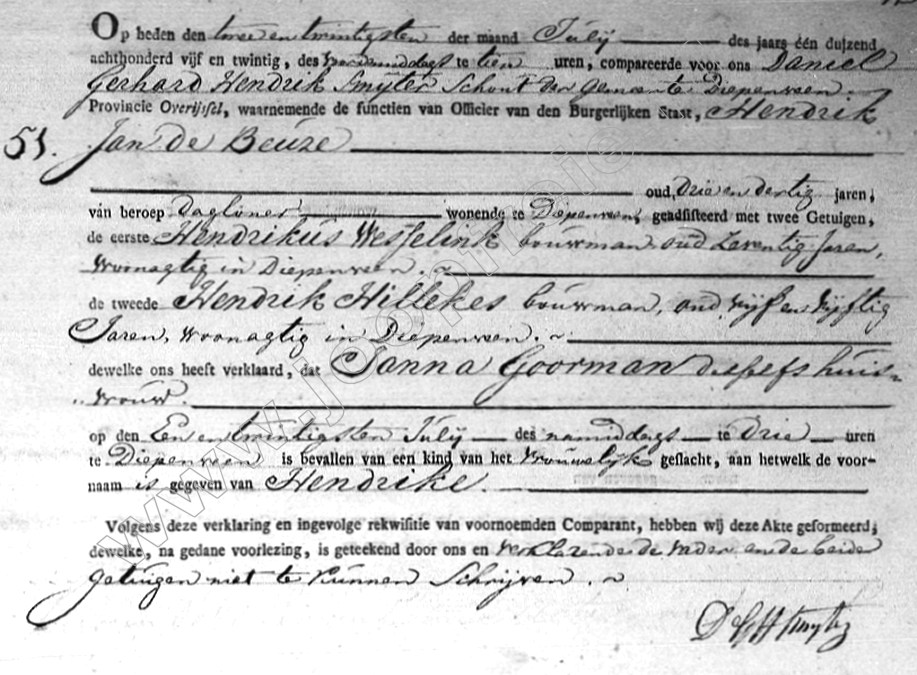 Op heden den twee en twintigsten der maand July des jaars één duizend
achthonderd vijf en twintig, des voormiddags te tien uren, compareerde voor ons Daniel
Gerhard Hendrik Smijter Schout der Gemeente Diepenveen
Provincie Overijsel, waarnemende de functien van Officier van den Burgerlijken Staat, Hendrik
51. Jan de Beuze
oud, drie en dertig jaren,
van beroep Dagloner wonende te Diepenveen, geadsisteerd met twee Getuigen,
de eerste Hendrikus Wesselink bouwman oud Zeventig Jaren,
woonagtig in Diepenveen.
de tweede Hendrik Hillekes bouwman, oud vijf en vijftig
Jaren, woonagtig in Diepenveen.
dewelke ons heeft verklaard, dat Janna Goorman deszelfs huis-
vrouw.
op den Een en twintigsten July des namiddags te drie uren
te Diepenveen is bevallen van een kind van het vrouwelijk geslacht, aan hetwelk de voor-
naam is gegeven van Hendrike.
Volgens deze verklaring en ingevolge rekwisitie van voornoemden Comparant, hebben wij deze Akte geformeerd;
dewelke, na gedane voorlezing, is geteekend door ons en verklarende de vader en de beide
getuigen niet te kunnen Schrijven.
DGH Smijter